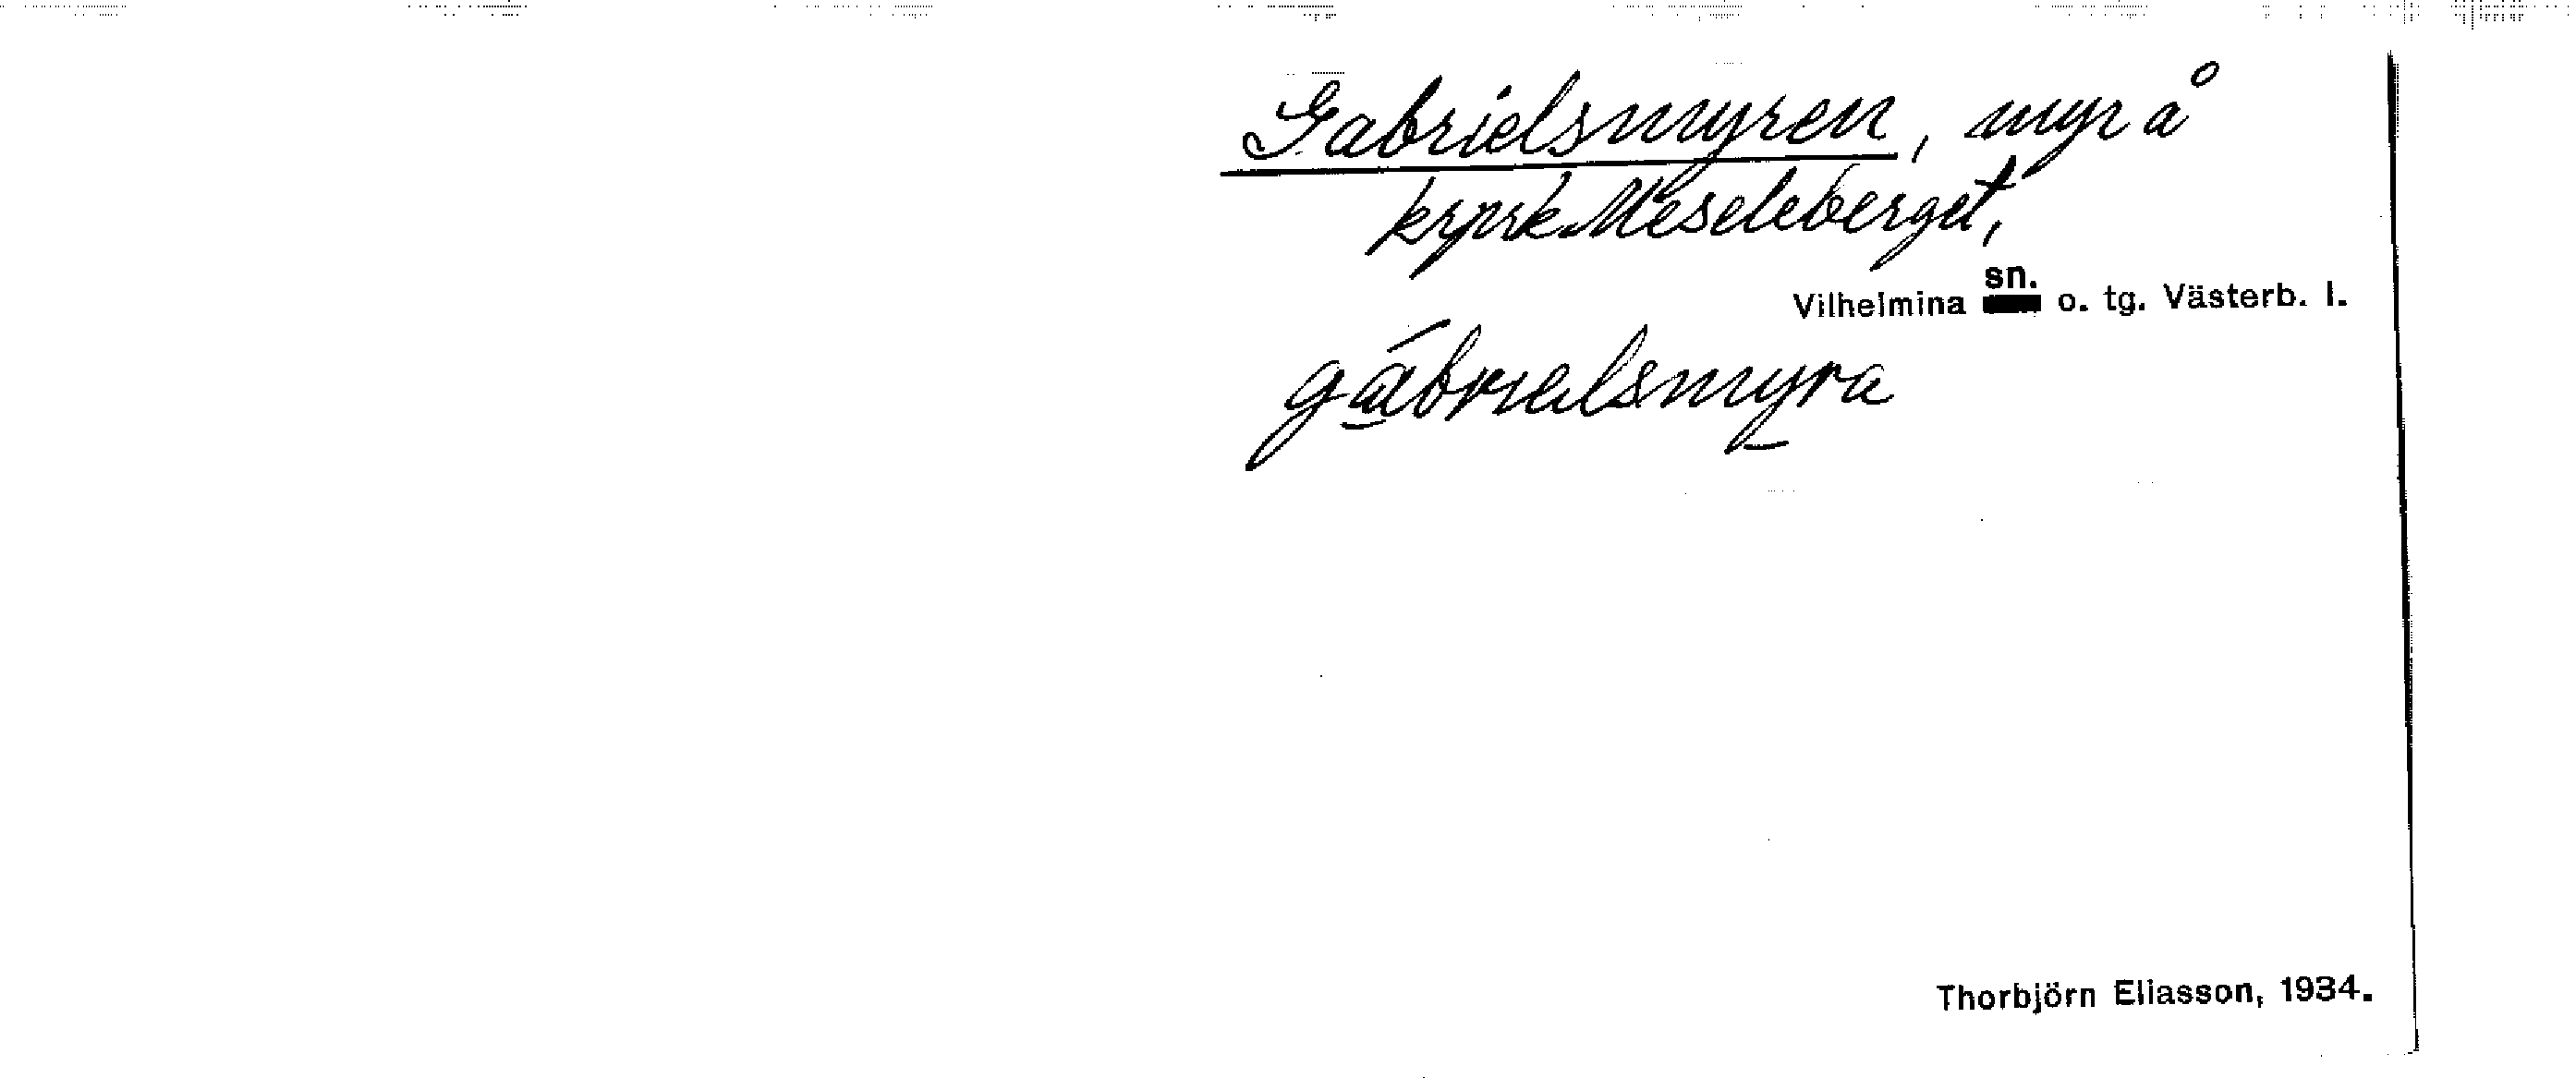 Gabrielsmyren, myr å
krprk Meseleberget,
Vilhelmina sn. o. tg. Västerb. l.
gábrielsmyra
Thorbjörn Eliasson, 1934.